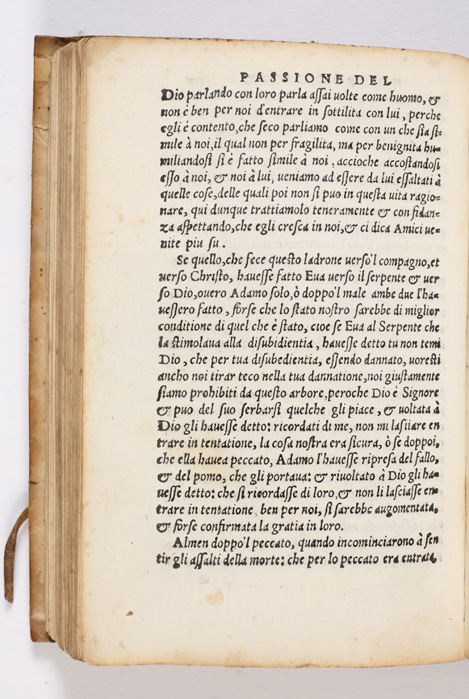 PASSIONE DEL
Dio parlando con loro parla assai uolte come huomo, &
non è ben per noi d'entrare in sottilita con lui, perche
egli è contento, che seco parliamo come con un che sia si=
mile à noi, il qual non per fragilita, ma per benignita hu=
miliandosi si è fatto simile à noi, accioche accostandosi
esso à noi, & noi à lui, ueniamo ad essere da lui essaltati à
quelle cose, delle quali poi non si puo in questa uita ragio=
nare, qui dunque trattiamolo teneramente & con fidan=
za aspettando, che egli cresca in noi, & ci dica Amici ue=
nite piu su.
Se quello, che fece questo ladrone uerso'l compagno, et
uerso Christo, hauesse fatto Eua uerso il serpente & uer
so Dio, ouero Adamo solo, ò doppo'l male ambe due l'ha=
uessero fatto, forse che lo stato nostro sarebbe di miglior
conditione di quel che è stato, cioe se Eua al Serpente che
la stimolaua alla disubidientia, hauesse detto tu non temi
Dio, che per tua disubedientia, essendo dannato, uoresti
ancho noi tirar teco nella tua dannatione, noi giustamente
siamo prohibiti da questo arbore, peroche Dio è Signore
& puo del suo serbarsi quelche gli piace, & uoltata à
Dio gli hauesse detto: ricordati di me, non mi lasciare en
trare in tentatione, la cosa nostra era sicura, ò se doppoi,
che ella hauea peccato, Adamo l'hauesse ripresa del fallo,
& del pomo, che gli portaua: & riuoltato à Dio gli ha=
uesse detto: che si ricordasse di loro, & non li lasciasse en=
trare in tentatione, ben per noi, si sarebbe augomentata,
& forse confirmata la gratia in loro.
Almen doppo'l peccato, quando incominciarono à sen
tir gli assalti della morte: che per lo peccato era entrata,